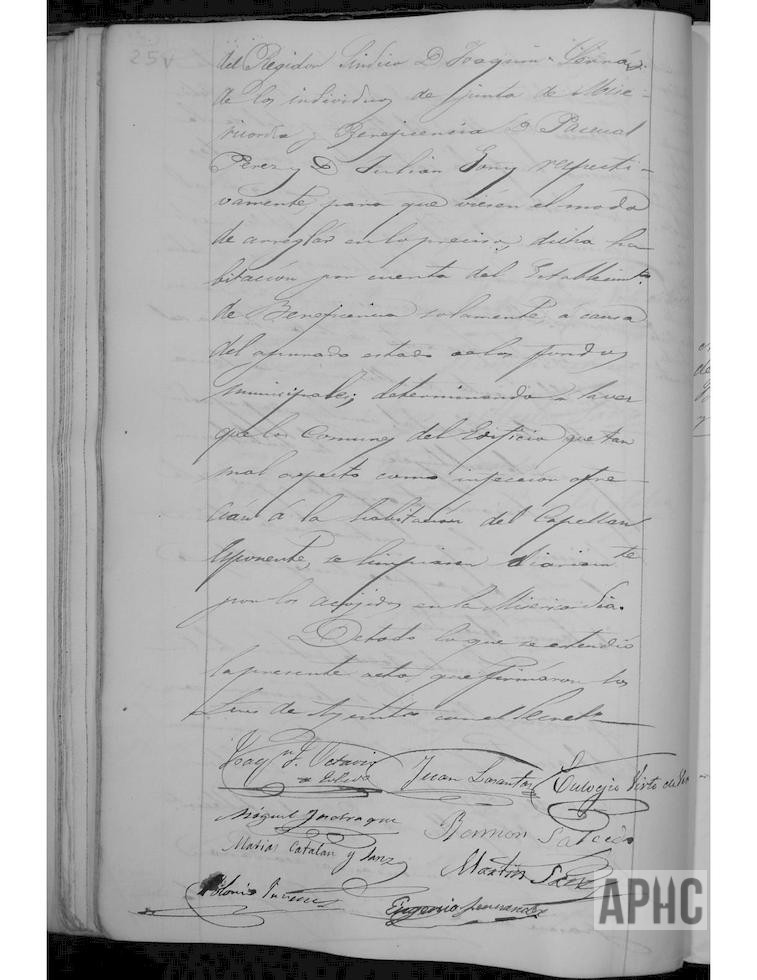 25v
del Regidor Sindico D. Joaquin
de los individuos de junta de Mise-
ricordia y Beneficencia D. Pascual
Perez y D. Julian Goñy respecti-
vamente, para que viesen el modo
de arreglar en lo preciso, dicha ha-
bitacion por cuenta del Establecimto.
de Beneficencia solamente, á causa
del apurado estado de los fondos
municipales; determinando a la vez
que los Comunes del Edificio que tan
mal aspecto como infeccion ofre-
cian á la habitacion del Capellan
esponente, se limpiasen diariamte
por los acojidos en la Misericordia.
De todo lo que se estendió
la presente acta que firmaron los
Sres de Ayunto con el Secreto
Joaqn. F. Octavio
de Toledo
Juan Lorente
Eulogio Virto de
Miguel Jndraque
Ramon Salcedo
Matias Catalan y Sanz
Martin Saez
Eugenio Fernandez
APHC